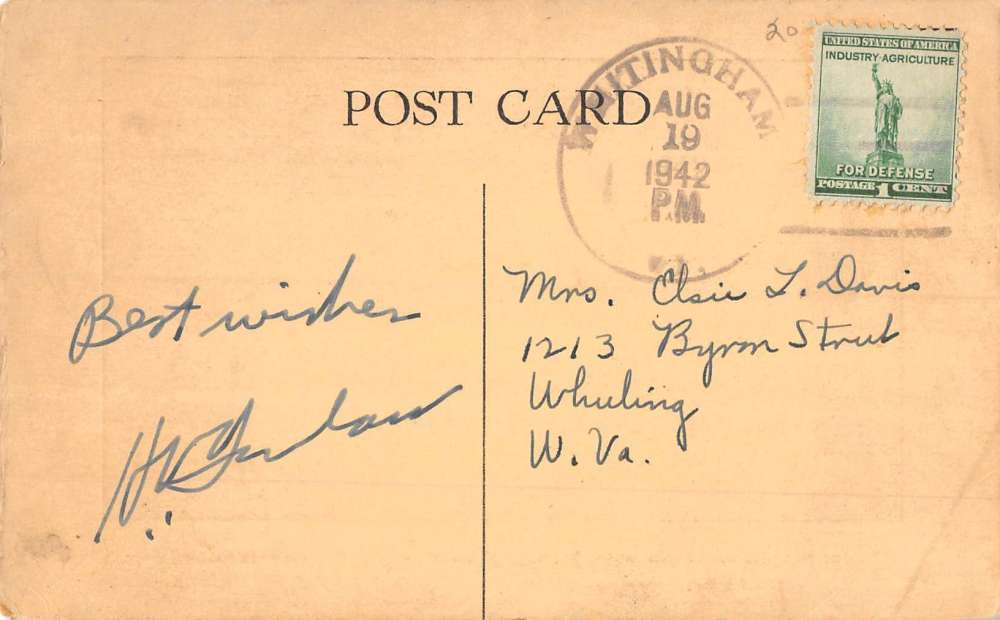 20
UNITED STATES OF AMERICA
INDUSTRY·AGRICULTURE
FOR DEFENSE
POSTAGE 1 CENT
POST CARD
WHITINGHAM
AUG
19
1942
PM
Best wishes
Mrs. Elsie L. Davis
1213 Byron Street
Wheeling
W. Va.